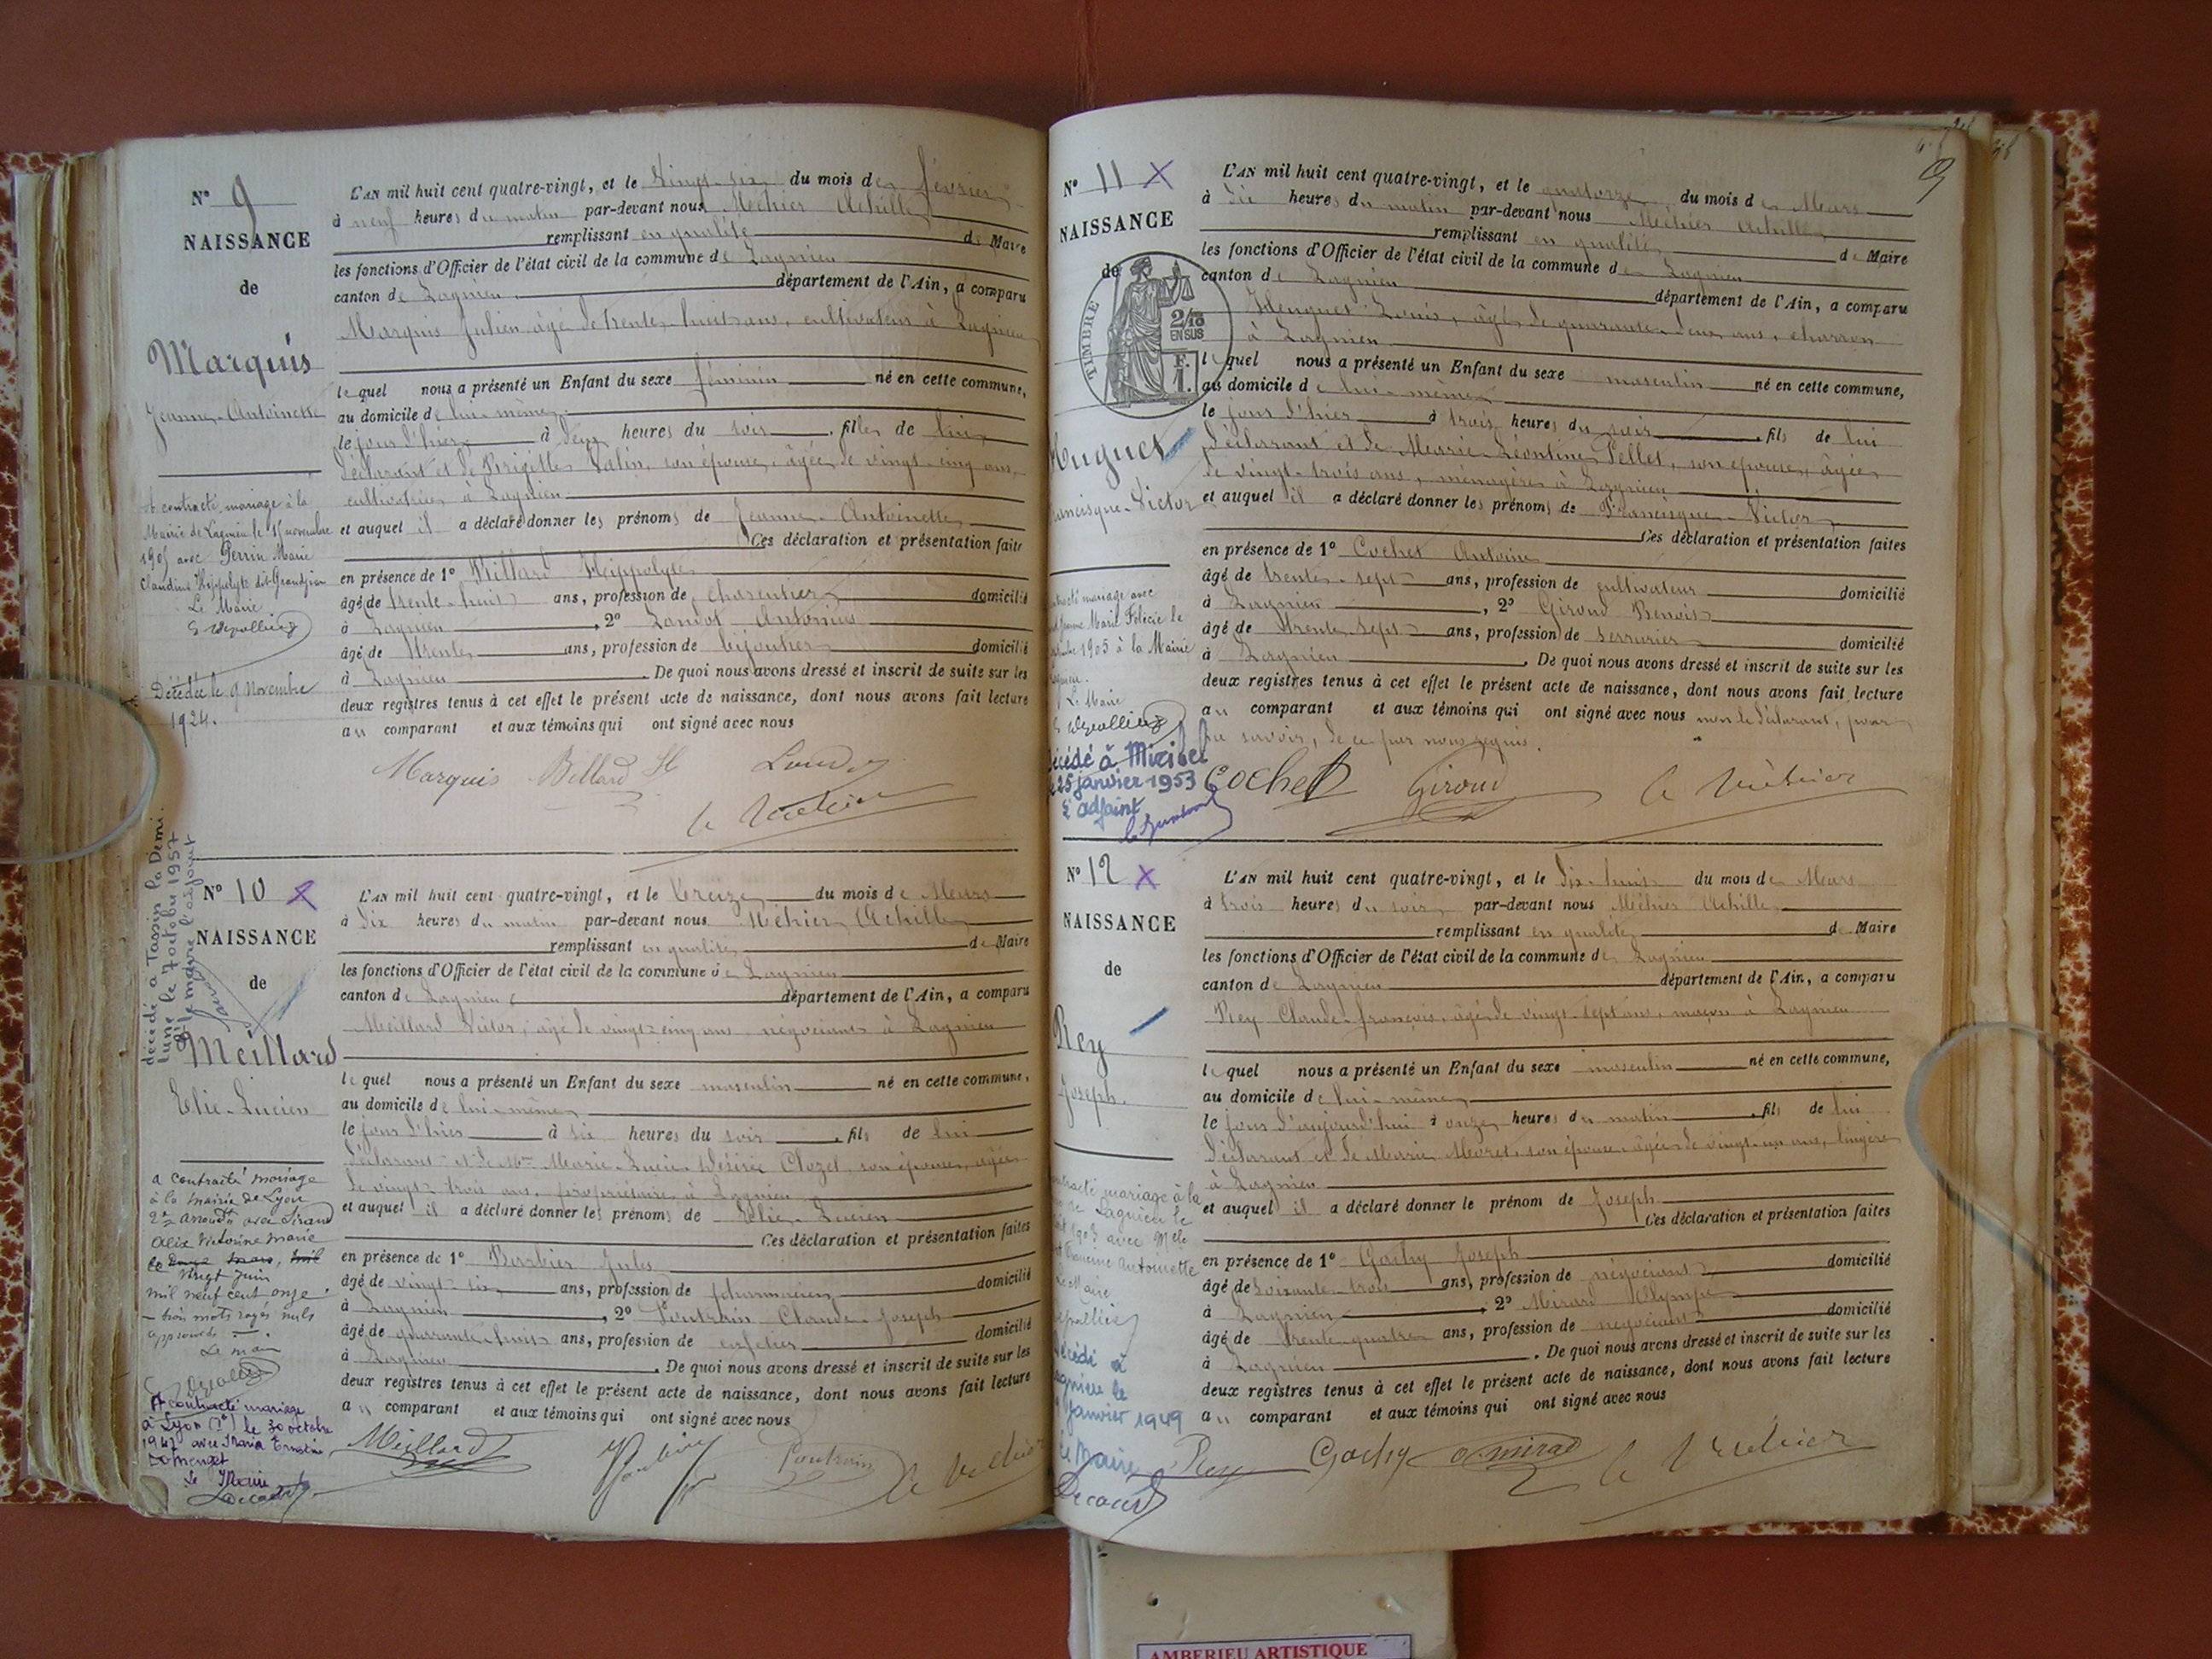 N° 9
NAISSANCE
de
Marquis
Jeanne-Antoinette
a contracté mariage à la
Mairie de Lagnieu le novembre
avec Perrin Marie
Claudius Hippolyte dit Grandjean
Le Maire
Décédée le 9 Novembre
1924.
L'AN mil huit cent quatre-vingt, et le vingt-six du mois de février
à neuf heures du matin par-devant nous Méhier Achille
remplissant en qualité de Maire
les fonctions d'Officier de l'état civil de la commune de Lagnieu
canton de Lagnieu département de l'Ain, a comparu
Marquis Julien âgé de trente-huit ans, cultivateur à Lagnieu
lequel nous a présenté un Enfant du sexe féminin né en cette commune,
au domicile de lui-même
le jour d'hier à deux heures du soir, fille de lui
déclarant et de Brigitte son épouse, âgée de vingt-cinq ans,
cultivatrice à Lagnieu
et auquel il a déclaré donner les prénoms de Jeanne-Antoinette
Ces déclaration et présentation faite
en présence de 1° Billard Hippolyte
âgé de trente-huit ans, profession de charcutier domicilié
à Lagnieu, 2° Antonin
âgé de trente ans, profession de bijoutier domicilié
à Lagnieu. De quoi nous avons dressé et inscrit de suite sur les
deux registres tenus à cet effet le présent acte de naissance, dont nous avons fait lecture
au comparant et aux témoins qui ont signé avec nous
Marquis Billard H
A. Méhier
N° 10 X
NAISSANCE
de
Meillard
Elie-Lucien
décédé à Tassin la Demi-
Lune le 7 octobre 1957
le maire l'adjoint
a contracté mariage
à la mairie de Lyon
2e arrondt avec Sirand
Alix Victorine Marie
le douze mars, mil
vingt juin
mil neuf cent onze
– trois mots rayés nuls
approuvés –.
Le maire
A contracté mariage
à Lyon le 30 octobre
1947 avec Maria Ernestine
Domenget
Le Maire
Decoert
L'AN mil huit cent quatre-vingt, et le treize du mois de Mars
à dix heures du matin par-devant nous Méhier Achille
remplissant en qualité de Maire
les fonctions d'Officier de l'état civil de la commune de Lagnieu
canton de Lagnieu département de l'Ain, a comparu
Meillard Victor, âgé de vingt-cinq ans négociant à Lagnieu
lequel nous a présenté un Enfant du sexe masculin né en cette commune,
au domicile de lui-même
le jour d'hier à six heures du soir, fils de lui
déclarant et de Marie-Lucie-Désirée Clozel, son épouse, âgée
de vingt-trois ans, propriétaire à Lagnieu
et auquel il a déclaré donner les prénoms de Elie-Lucien
Ces déclaration et présentation faites
en présence de 1° Barbier Jules
âgé de vingt-six ans, profession de pharmacien domicilié
à Lagnieu, 2° Poutrain Claude-Joseph
âgé de quarante-huit ans, profession de cafetier domicilié
à Lagnieu. De quoi nous avons dressé et inscrit de suite sur les
deux registres tenus à cet effet le présent acte de naissance, dont nous avons fait lecture
au comparant et aux témoins qui ont signé avec nous
Meillard Poutrain A. Méhier
9
N° 11 X
NAISSANCE
de
TIMBRE
2/10
EN SUS
1 F.
Huguet
Francisque-Victor
contracté mariage avec
Jeanne Marie Félicie le
1905 à la Mairie
Le Maire
Décédé à Miribel
le 25 janvier 1953
L'adjoint
L'AN mil huit cent quatre-vingt, et le quatorze du mois de Mars
à dix heures du matin par-devant nous Méhier Achille
remplissant en qualité de Maire
les fonctions d'Officier de l'état civil de la commune de Lagnieu
canton de Lagnieu département de l'Ain, a comparu
Huguet Louis, âgé de quarante-deux ans, charron
à Lagnieu
lequel nous a présenté un Enfant du sexe masculin né en cette commune,
au domicile de lui-même
le jour d'hier à trois heures du soir, fils de lui
déclarant et de Marie-Léontine Pellet, son épouse, âgée
de vingt-trois ans, ménagère à Lagnieu
et auquel il a déclaré donner les prénoms de Francisque-Victor
Ces déclaration et présentation faites
en présence de 1° Cochet Antoine
âgé de trente-sept ans, profession de cultivateur domicilié
à Lagnieu, 2° Giroud Benoit
âgé de trente-sept ans, profession de serrurier domicilié
à Lagnieu. De quoi nous avons dressé et inscrit de suite sur les
deux registres tenus à cet effet le présent acte de naissance, dont nous avons fait lecture
au comparant et aux témoins qui ont signé avec nous non le déclarant, pour
ne savoir, de ce par nous requis.
Cochet Giroud A. Méhier
N° 12 X
NAISSANCE
de
Rey
Joseph.
contracté mariage à la
Lagnieu le
1903 avec Melle
Antoinette
Le Maire
Décédé à
Lagnieu le
janvier 1949
Le Maire
Decoert
L'AN mil huit cent quatre-vingt, et le dix-huit du mois de Mars
à trois heures du soir par-devant nous Méhier Achille
remplissant en qualité de Maire
les fonctions d'Officier de l'état civil de la commune de Lagnieu
canton de Lagnieu département de l'Ain, a comparu
Rey Claude-françois, âgé de vingt-sept ans, maçon à Lagnieu
lequel nous a présenté un Enfant du sexe masculin né en cette commune,
au domicile de lui-même
le jour d'aujourd'hui à onze heures du matin, fils de lui
déclarant et de Marie Moret, son épouse âgée de vingt-un ans, lingère
à Lagnieu
et auquel il a déclaré donner le prénom de Joseph
Ces déclaration et présentation faites
en présence de 1° Gochy Joseph
âgé de soixante-trois ans, profession de négociant domicilié
à Lagnieu, 2° Mirad Olympe
âgé de trente-quatre ans, profession de négociant domicilié
à Lagnieu. De quoi nous avons dressé et inscrit de suite sur les
deux registres tenus à cet effet le présent acte de naissance, dont nous avons fait lecture
au comparant et aux témoins qui ont signé avec nous
Rey Gochy O. Mirad A. Méhier
AMBERIEU ARTISTIQUE